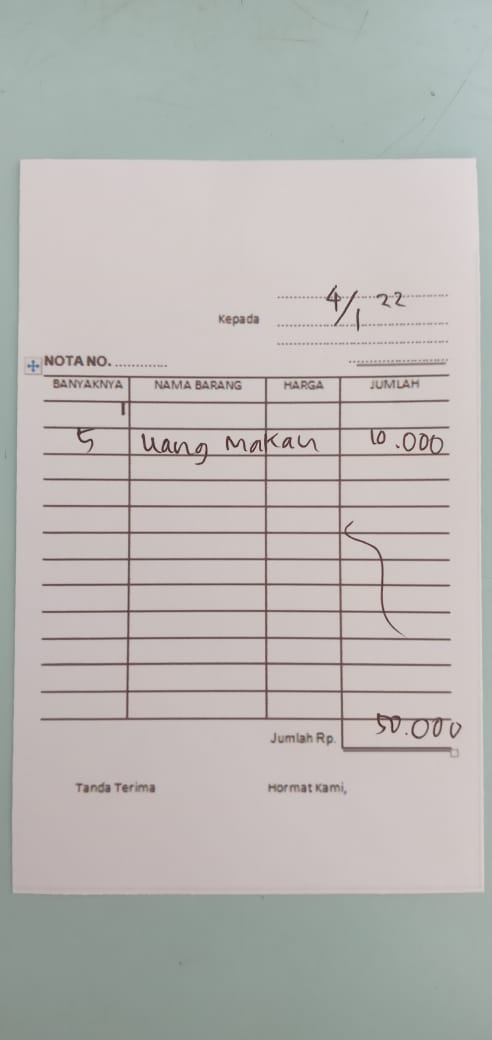 4/1 22
Kepada
NOTA NO. ............
BANYAKNYA NAMA BARANG HARGA JUMLAH
5 Uang Makan 10.000
Jumlah Rp. 50.000
Tanda Terima Hormat Kami,